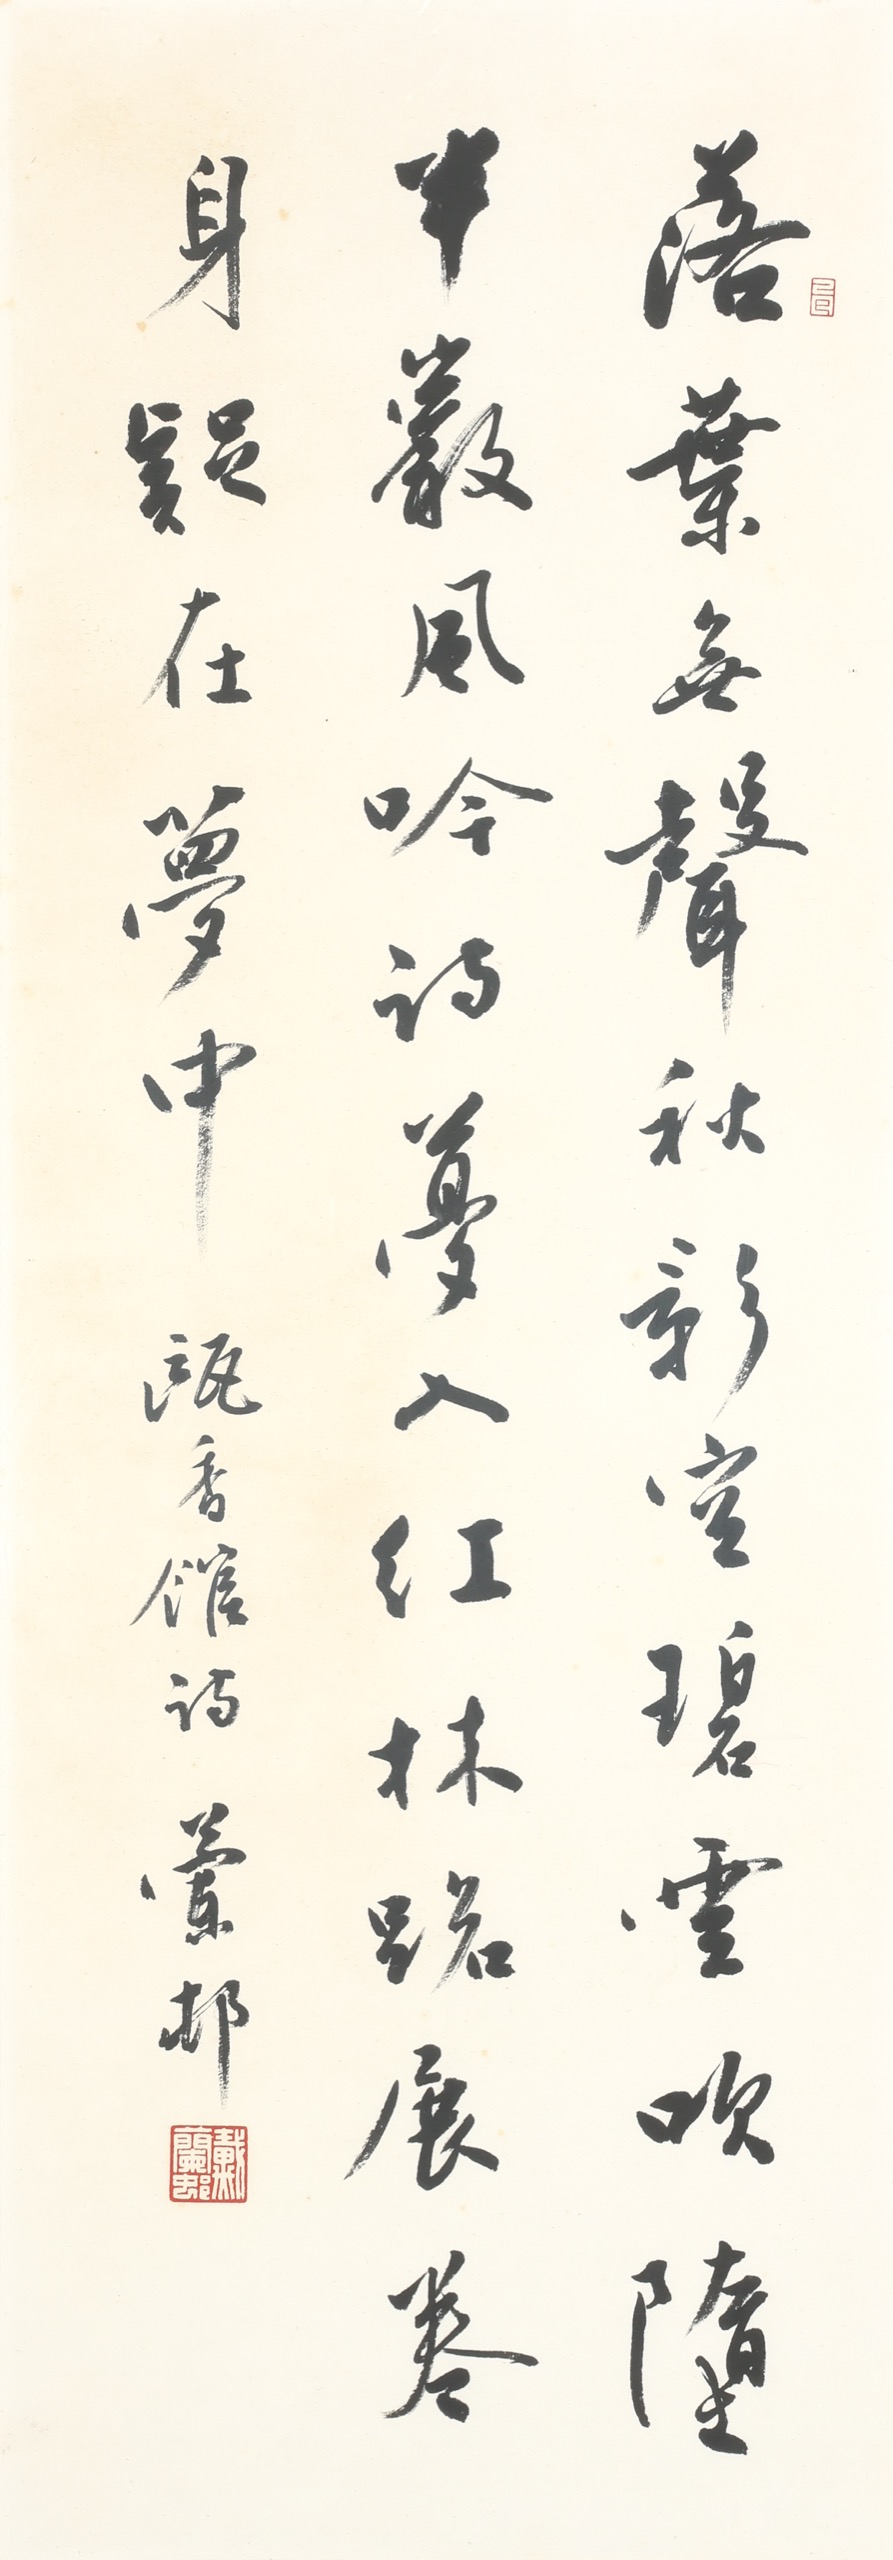 落葉無聲秋影空碧雲吹墮
半巖風吟詩夢入紅林路展卷
身疑在夢中 甌香館詩 蘭邨
戴蘭邨